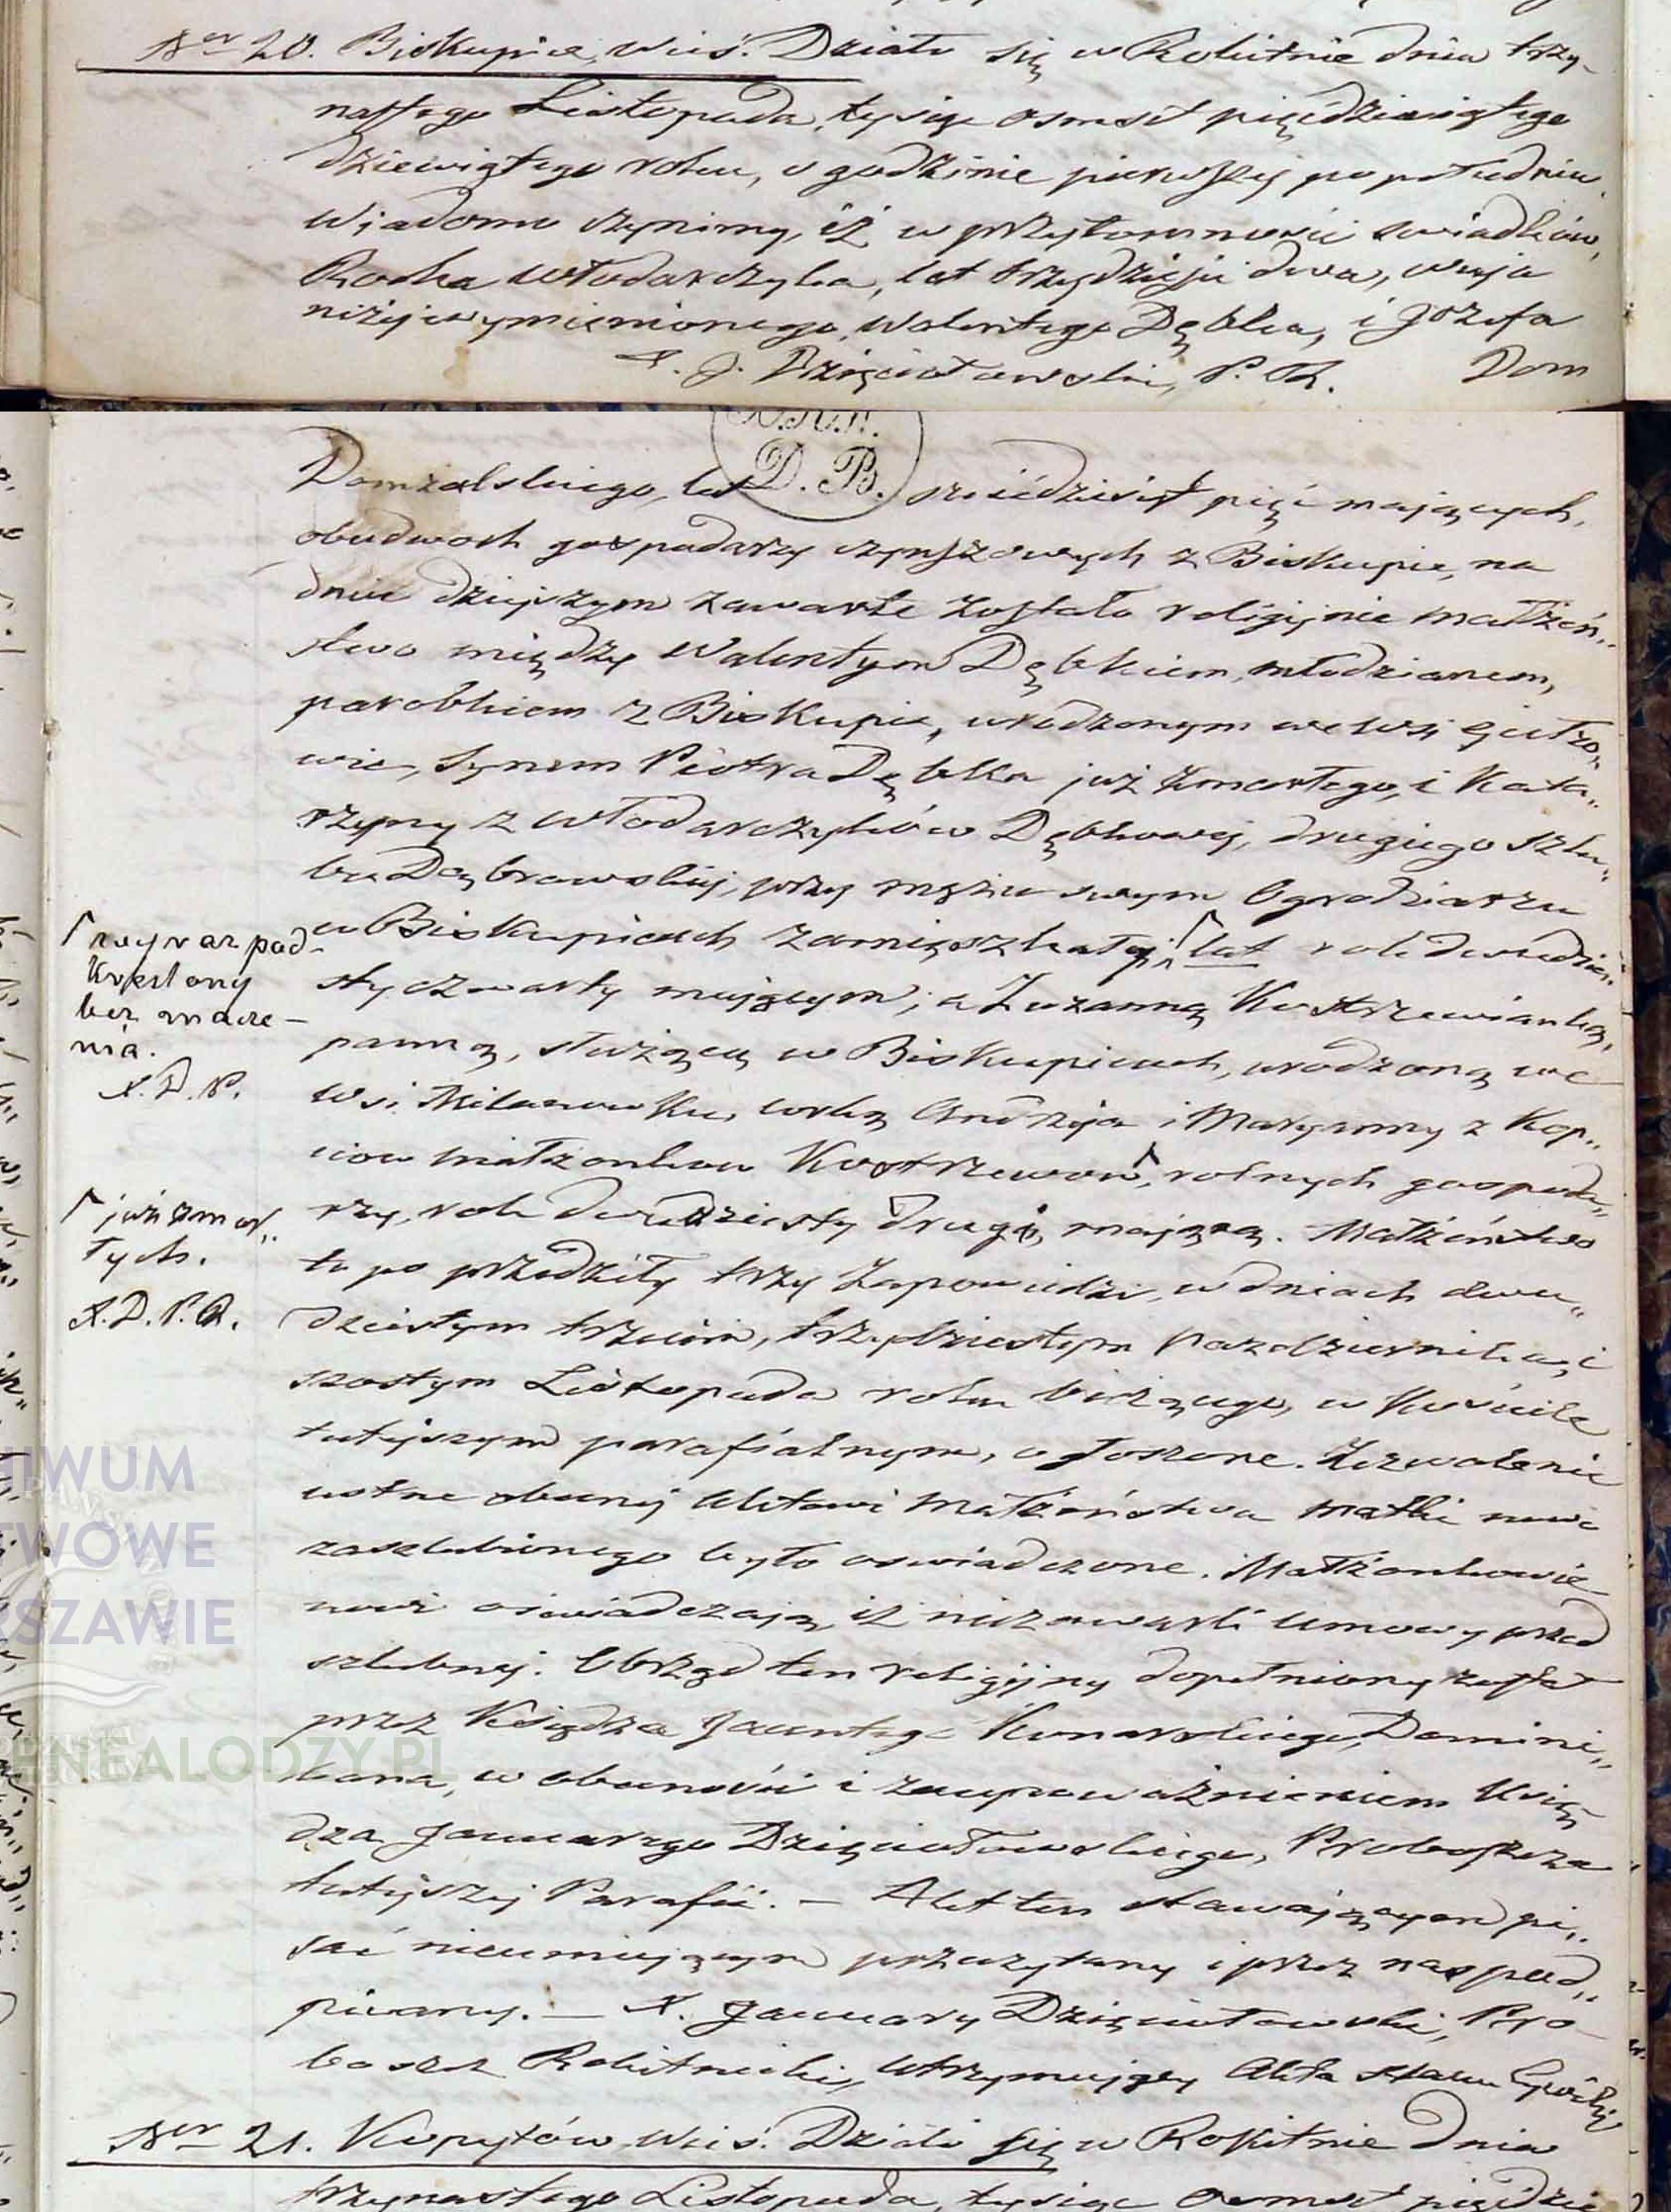 Ner 20. Biskupice, wieś. Działo się w Rokitnie dnia trzy-
nastego Listopada, tysiąc osmset pięćdziesiątego
dziewiątego roku, o godzinie pierwszej po południu.
Wiadomo czynimy, iż w przytomności świadków,
Rocha Włodarczyka, lat trzydzieści dwa, wuja
niżej wymienionego Walentego Dębka, i Józefa
X. J. Dzięciołowski, P. R. Dom
D. B.
Domżalskiego, lat sześćdziesiąt pięć mających,
obudwoch gospodarzy czynszowych z Biskupic, na
dniu dzisiejszym zawarte zostało religijnie małżeń„
stwo między Walentym Dębkiem, młodzianem,
parobkiem z Biskupic, urodzonym we wsi
wie, synem Piotra Dębka już zmarłego, i Kata„
rzyny z Włodarczyków Dębkowej, drugiego szlu„
bu Dąbrowskiej, przy mężu swym Ogrodniarzu
w Biskupicach zamięszkałej, lat rok dwudzie„
sty czwarty mającym; a Zuzanną Kostrzewianką,
panną, służącą w Biskupicach, urodzoną we
wsi Milanowku, córką Andrzeja i Maryanny z Kop„
ciow małżonkow Kostrzewow, rolnych gospoda„
rzy, rok dwudziesty drugi, mającą. Małżeństwo
to poprzedziły trzy Zapowiedzi, w dniach dwu„
dziestym trzecim, trzydziestym Pazdziernika, i
szostym Listopada roku bieżącego, w Kościele
tutejszym parafialnym, ogłoszone. Zezwolenie
ustne obecnej Aktowi Małżeństwa matki nowo
zaszlubionego było oswiadczone. Małżonkowie
nowi oświadczają, iż niezawarli umowy przed
szlubnej. Obrząd ten religijny dopełniony został
przez Księdza Jacentego Konarskiego, Domini„
kana, w obecności i zaupoważnieniem Księ
dza Januarego Dzięciołowskiego, Proboszcza
tutejszej Parafii. – Akt ten stawającym pi„
sać nieumiejącym przeczytany i przez nas pod„
pisany. – X. January Dzięciołowski, Pro
boszcz Rokitnicki, utrzymujący Akta stanu Cywilnego
wyraz pod-
kreslony
bez znacze-
nia.
X. D. P.
już zmar„
łych.
X. D. P. R.
Ner 21. Kopytów, wieś. Działo się w Rokitnie dnia
trzynastego Listopada, tysiąc osmset pięćdzie
IWUM
WOWE
SZAWIE
ENEALODZY.PL